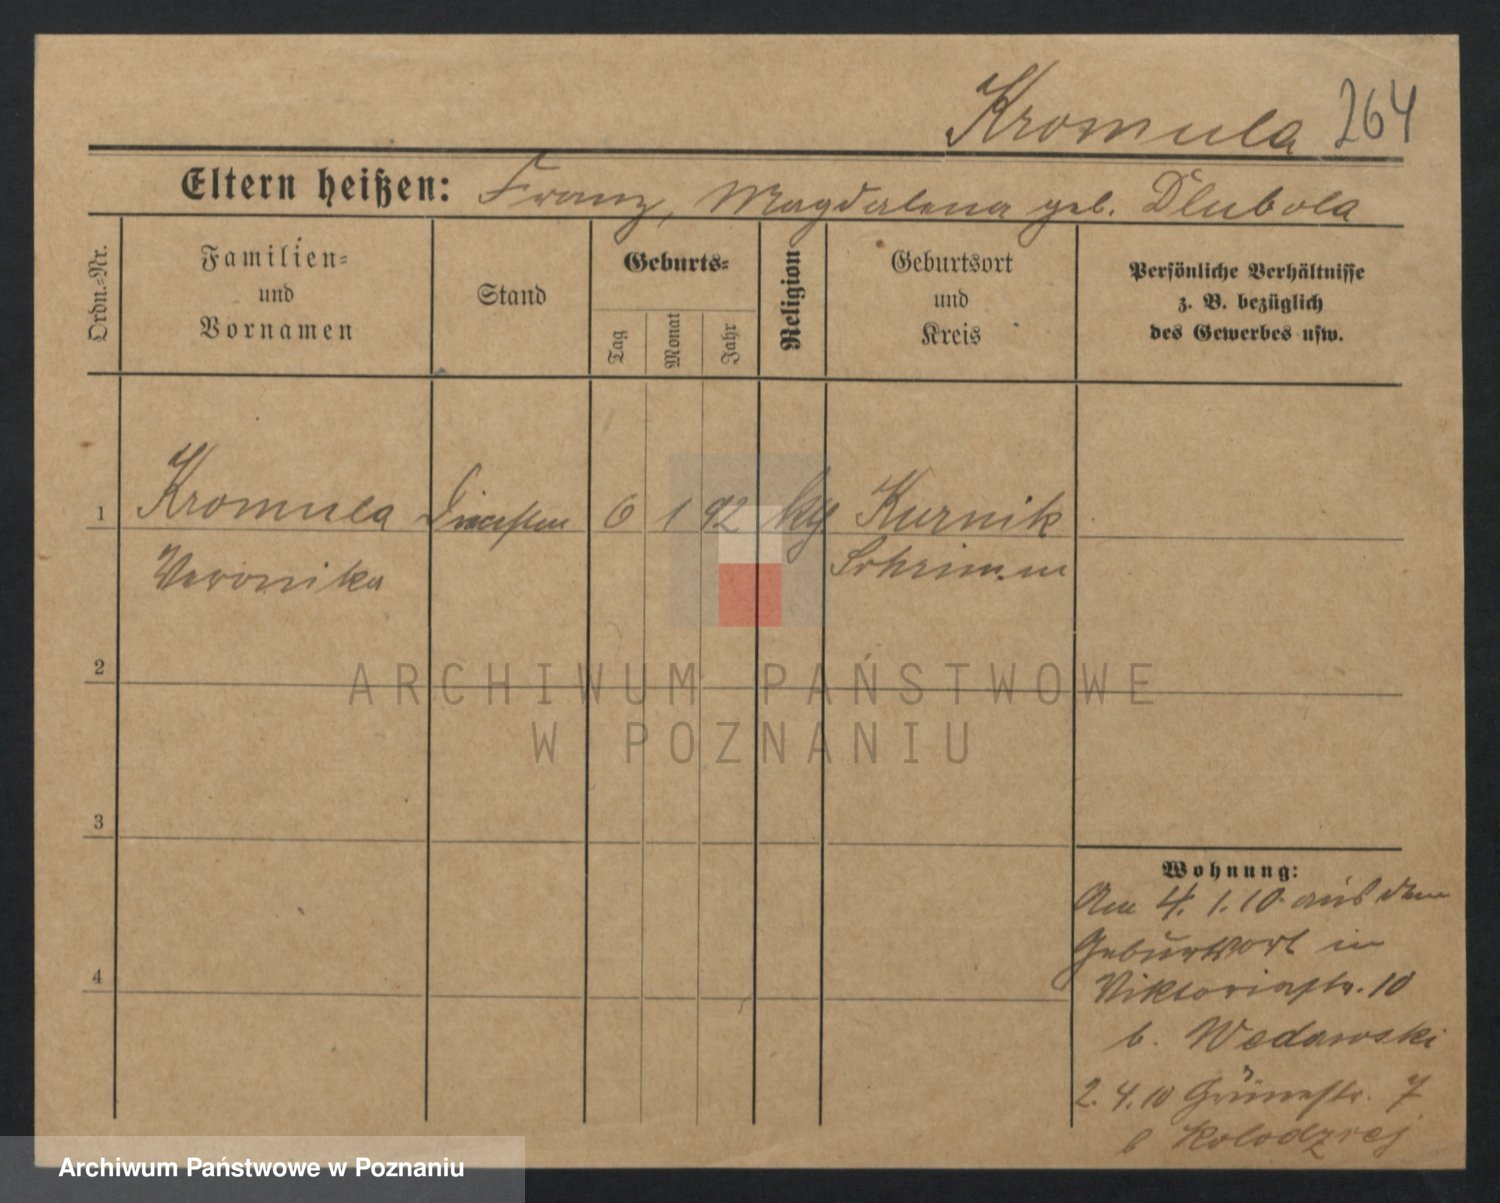 Kromula 264
Eltern heißen: Franz, Magdalena geb. Dlubola
Ordn.-Nr.
Familien-
und
Vornamen
Stand
Geburts-
Tag
Monat
Jahr
Religion
Geburtsort
und
Kreis
Persönliche Verhältnisse
z. B. bezüglich
des Gewerbes usw.
1 Kromula 6 1 92 Kurnik
Veronika Schrimm
2
3
4
ARCHIWUM PAŃSTWOWE
W POZNANIU
Wohnung:
Am 4. 1. 10 aus dem
Geburtsort in
Viktoriastr. 10
b. Wedaroski
2. 4. 10 Grünestr. 7
b Kolodzrej
Archiwum Państwowe w Poznaniu